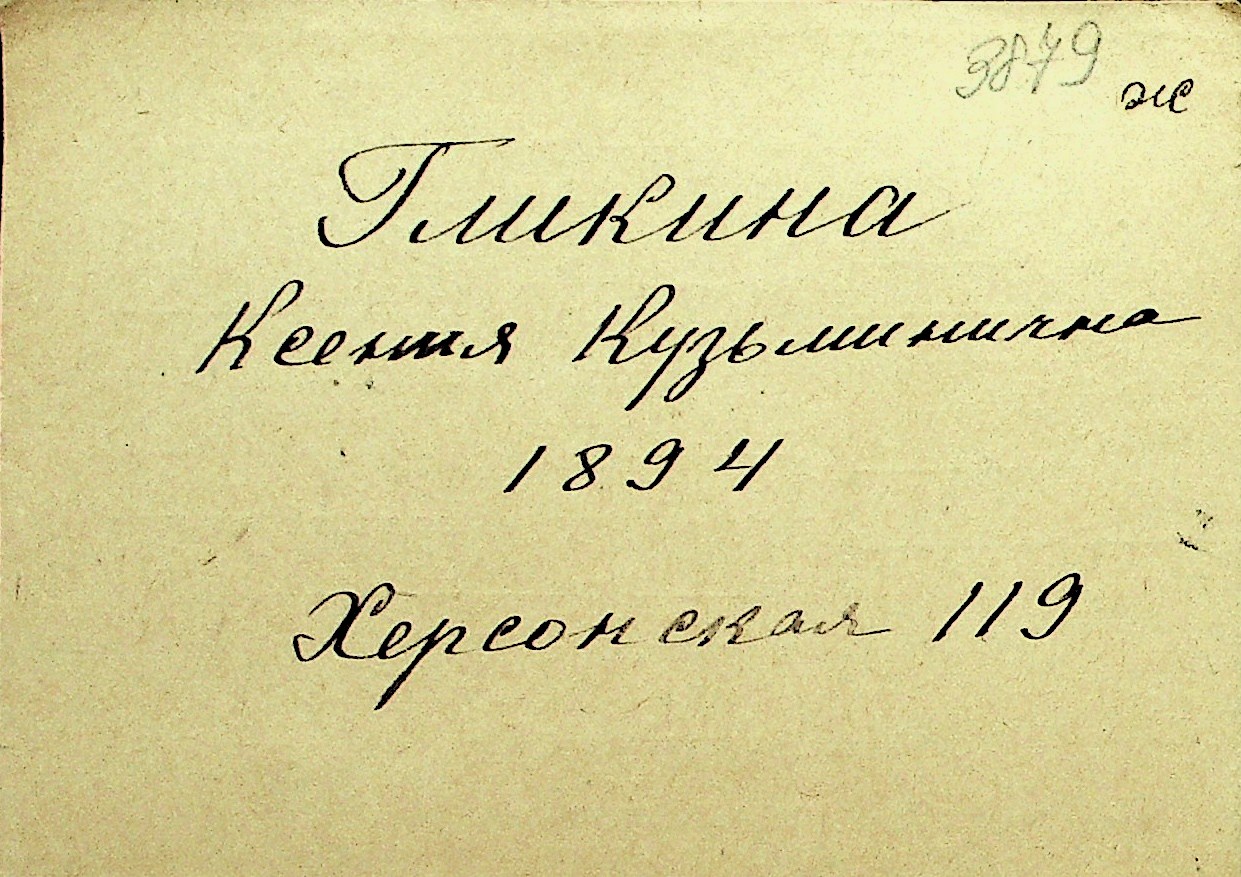 3879 ж
Гликина
Ксения Кузьминична
1894
Херсонская 119